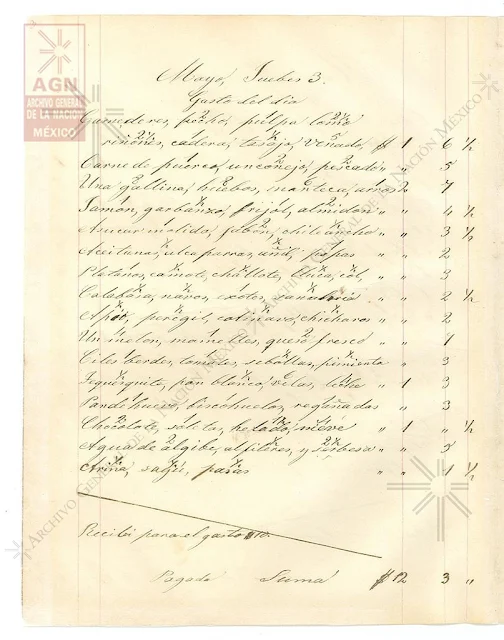 AGN
ARCHIVO GENERAL
DE LA NACIÓN
MÉXICO
Mayo, Juebes 3.
Gasto del dia
Carne de res, pecho, pulpa lomo
riñones, cadera, tasajo, Venado, $ 1 6 ½
Carne de puerco, un conejo, pescado " " 5
Una gallina, huebos, manteca, arros 2 " 7
Jamón, garbanzo, frijol, almidon " " 4 ½
Asucar molido, jabón, chile ancho " " 3 ½
Aceitunas, alcaparras, añil, papas " " 2
Platanos, camote, challote, col, " " 3
Calabasa, navos, exotes, sanahoria " " 2 ½
Apio, peregil, colinavo, chicharos " " 2
Un melon, mameilles, queso fresco " " 1
Ciles berdes, tomates, sebollas, pimienta " 3
Tequesquite, pan blanco, velas, leche " 1 3
Pan de huevo, biscochuelos, regañadas " 3
Chocolate, soletas, helado, nieve " 1 " ½
Agua de algibe, alfileres, y serbesa " " 5
Arina, sagú, pasas " " 1 ½
Recibi para el gasto $10.
Pagado Suma $ 12 3 "
ARCHIVO GENERAL DE LA NACIÓN MÉXICO